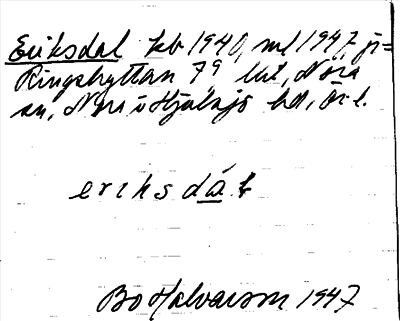 Eriksdal kb 1940, ml 1947, ji=
Ringshyttan 7⁹ lut, Nora
sn, Nora o Hjulsjö bd, Ör l.
erıksdá. l
Bo Halvarson 1947